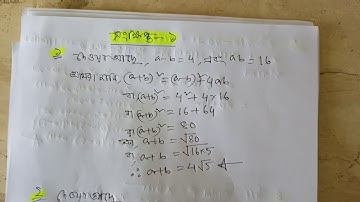 ২ দেওয়া আছে, a-b=4, এবং ab=16
আমরা জানি, (a+b)²=(a-b)²+4ab
বা (a+b)²=4²+4×16
বা (a+b)²=16+64
বা (a+b)²=80
a+b=√80
বা a+b=√16×5
∴ a+b=4√5